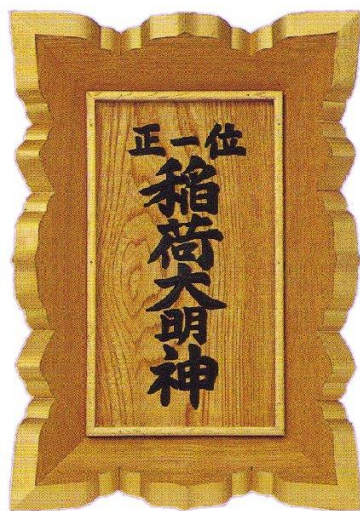 正一位
稲荷大明神